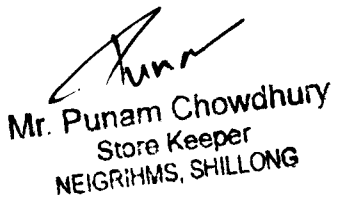 Punam
Mr. Punam Chowdhury
Store Keeper
NEIGRIHMS, SHILLONG